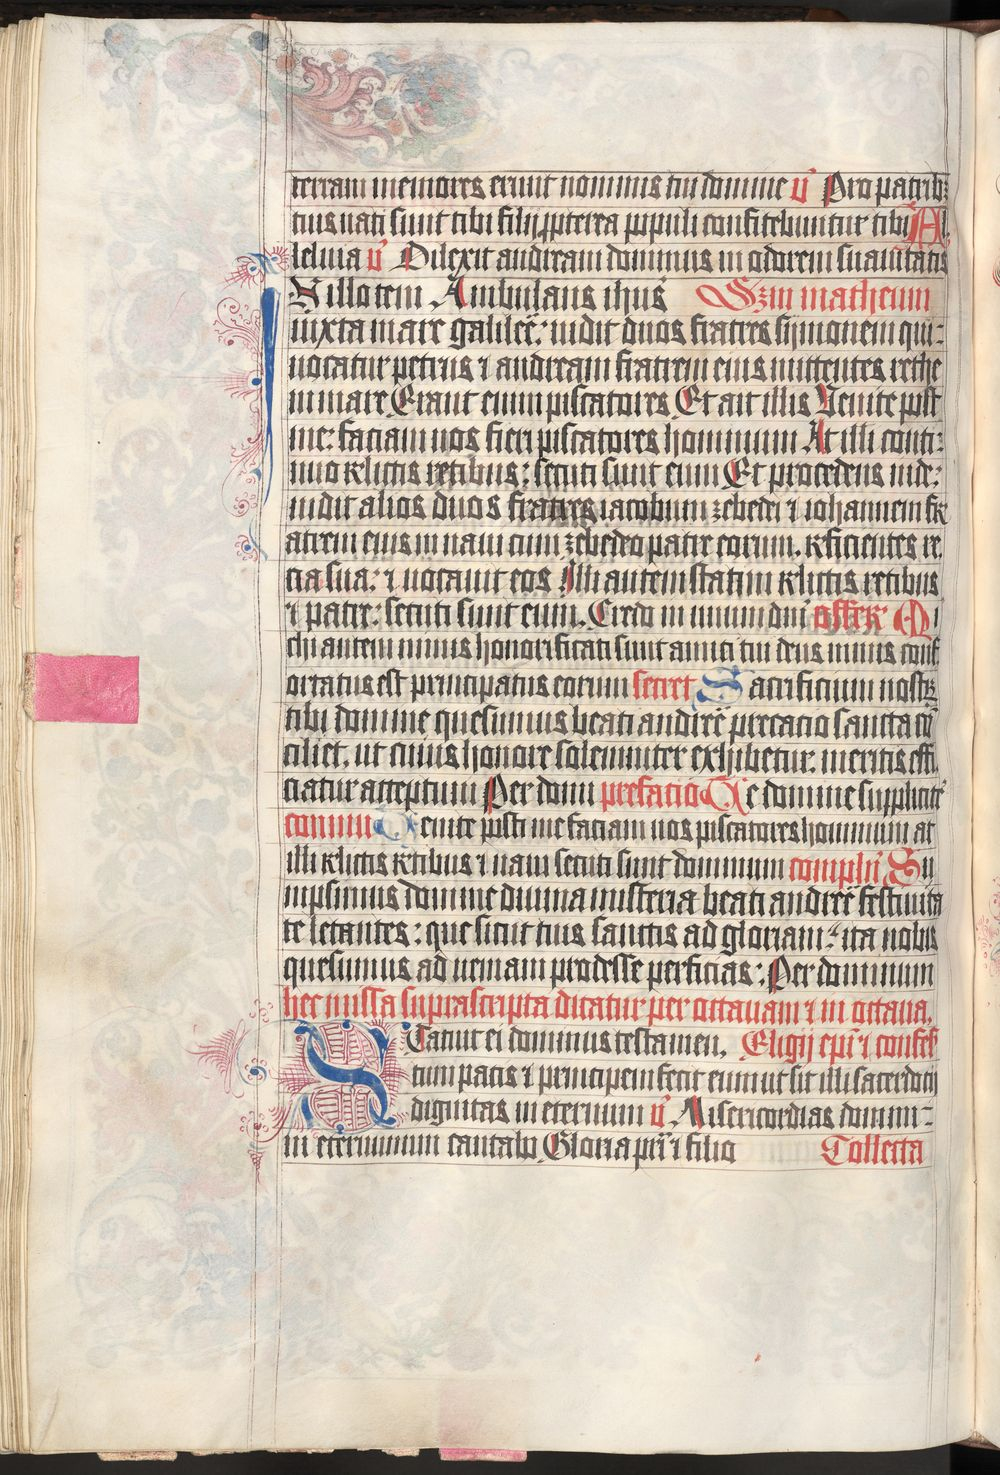 terram memores erunt nominis tui domine v̄ Pro patrib9
tuis nati sunt tibi filij ꝓpterea ppuli confitebuntur tibi Al
leluia v̄ Dilexit andream dominus in odorem suauitatis
In illo tem Ambulans ihūs Scdm matheum
iuxta mare galilee: uidit duos fratres symonem qui-
uocatur petrus ⁊ andream fratrem eius mittentes rethe
in mare Erant enim piscatores Et ait illis Venite post
me: faciam uos fieri piscatores hominum At illi conti-
nuo relictis retibus: secuti sunt eum Et procedens inde:
uidit alios duos fratres iacobum zebedei ⁊ iohannem fr
atrem eius in naui cum zebedeo patre eorum. reficientes re
cia sua: ⁊ uocauit eos Illi autem statim relictis retibus
⁊ patre: secuti sunt eum. Credo in unum dm̄ offer Mi
chi autem nimis honorificati sunt amici tui deus nimis conf
ortatus est principatus eorum secret Sacrificium nostrꝫ
tibi domine quesumus beati andree precatio sancta cō
ciliet. ut cuius honore solemniter exhibetur. meritis effi
ciatur acceptum Per domi prefacio Te domine suppliciter
commu Venite post me faciam uos piscatores hominum at
illi relictis retibus ⁊ naui secuti sunt dominum complen̄ Su
mpsimus domine diuina misteria beati andree festiuita
te letantes: que sicut tuis sanctis ad gloriam: ita nobis
quesumus ad ueniam prodesse perficias: Per dominum
hec missa suprascripta dicatur per octauam ⁊ in octaua.
Statuit ei dominus testamen. Eligij epī ⁊ confess
tum pacis ⁊ principem fecit eum ut sit illi sacerdocij
dignitas in eternum v̄ Misericordias domini-
in eternumum cantabo Gloria prī ⁊ filio Collecta